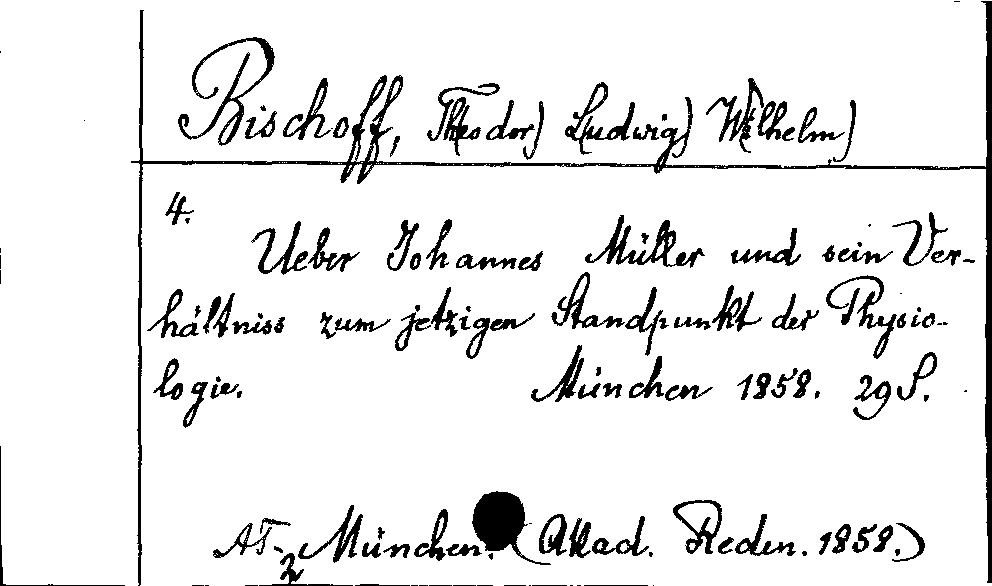 Bischoff, Theodor) Ludwig) Wilhelm)
4.
Ueber Johannes Müller und sein Ver-
hältniss zum jetzigen Standpunkt der Physio-
logie. München 1858. 29 S.
AT-2 München. (Akad. Reden. 1858.)